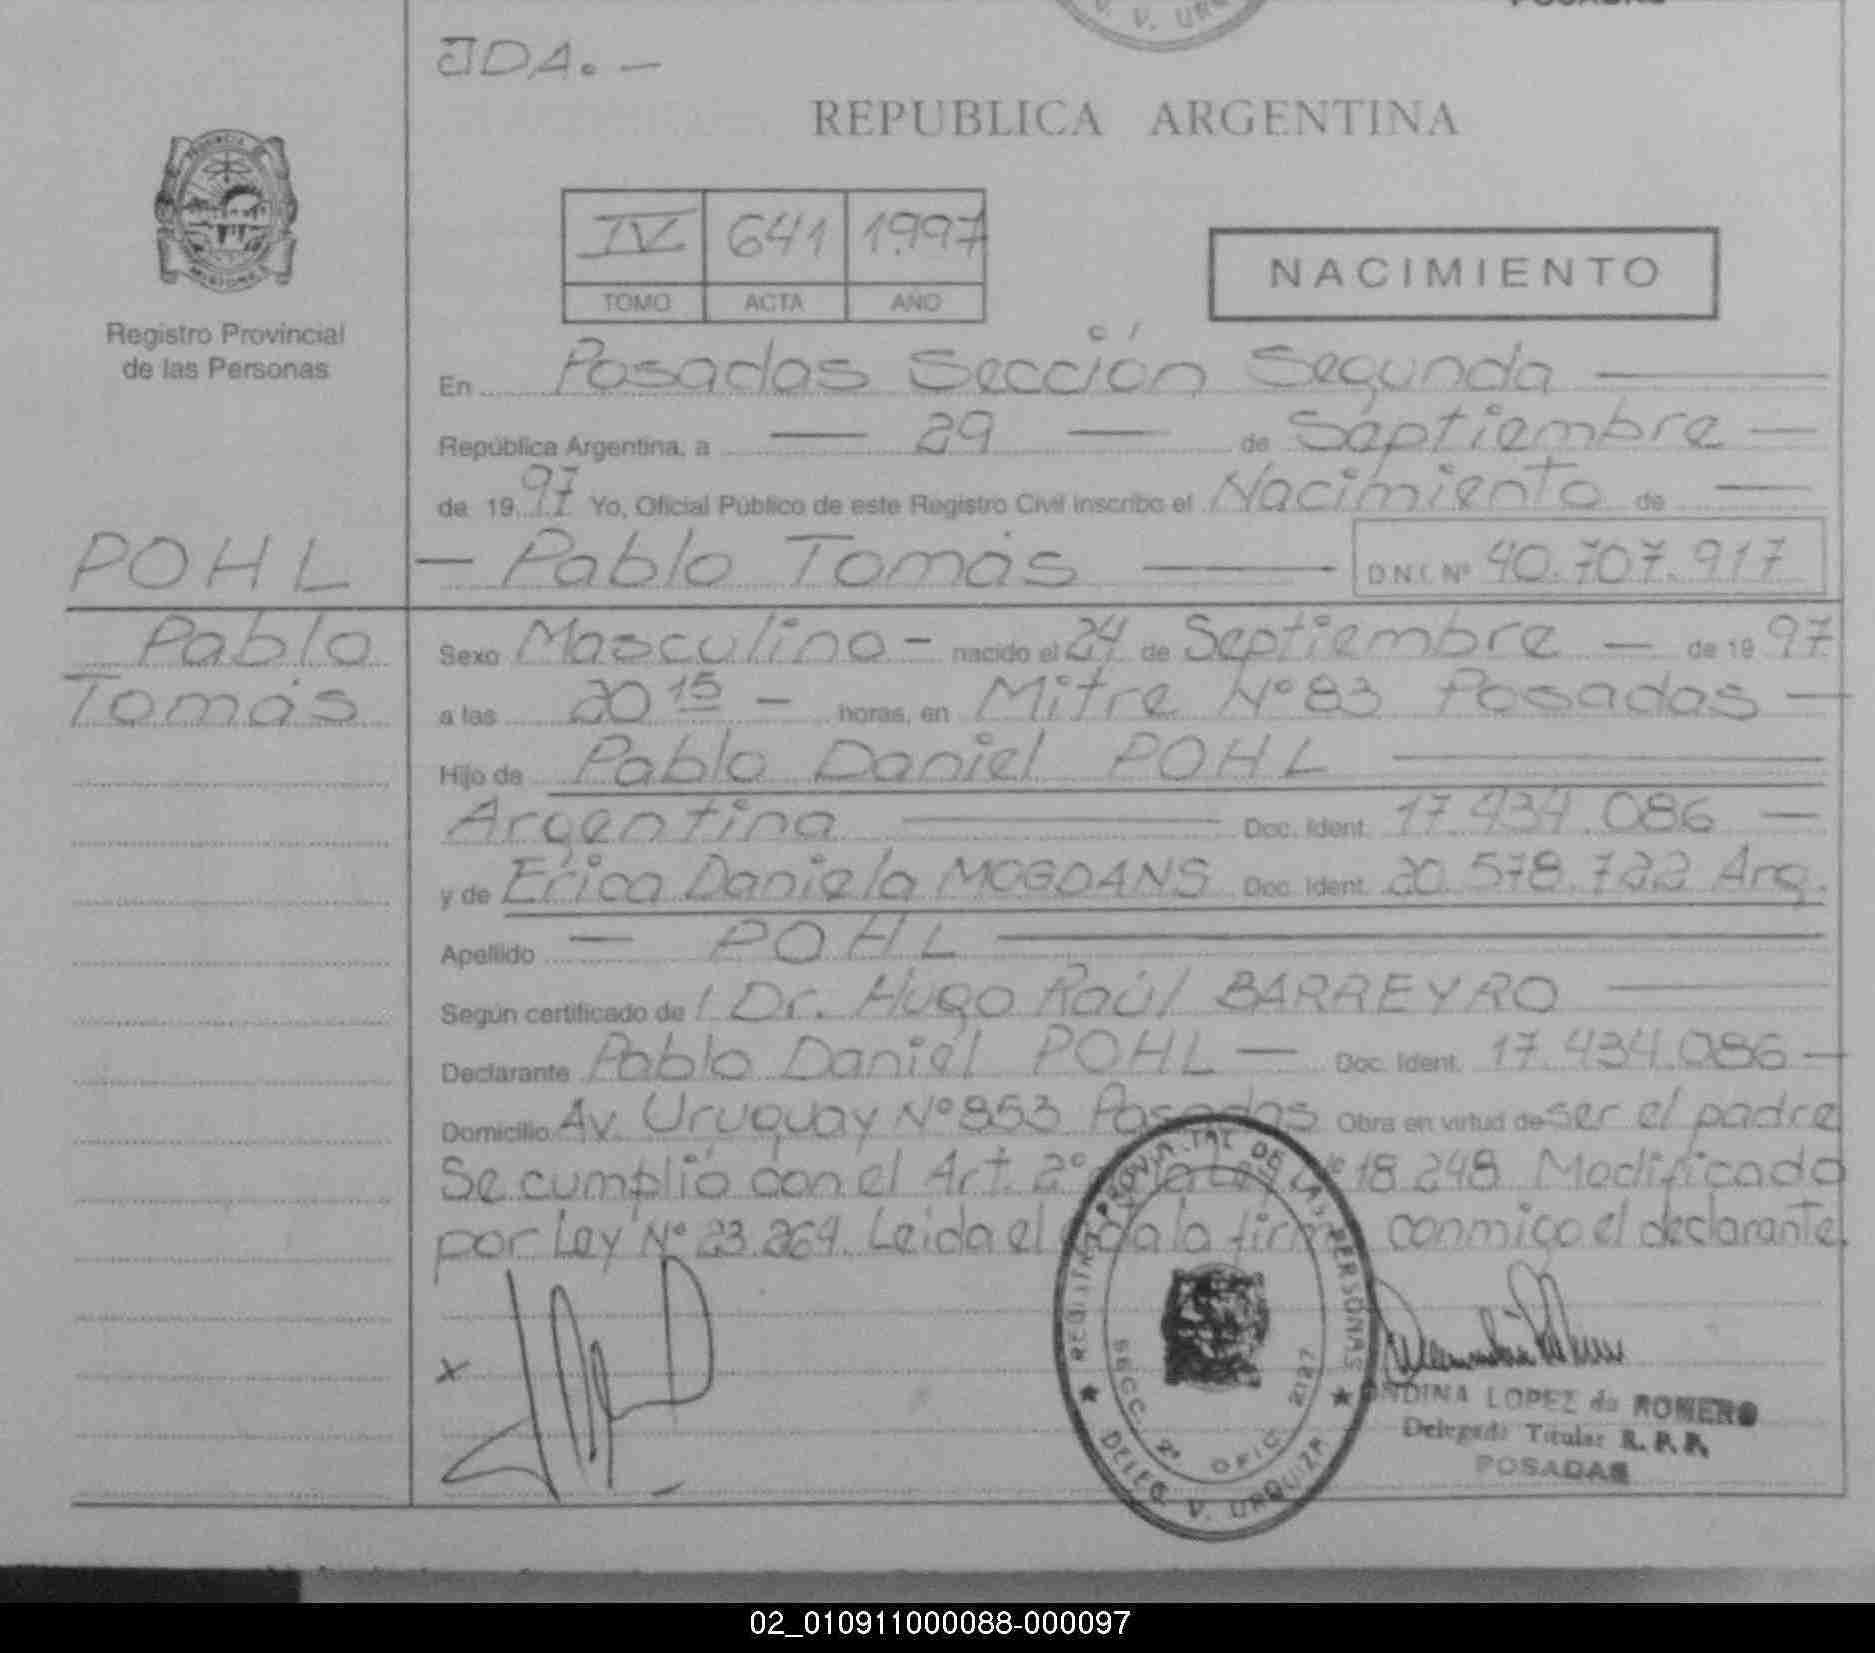 JDA. —
V. URQ
REPUBLICA ARGENTINA
PROVINCIA
MISIONES
IV 641 1997
TOMO ACTA AÑO
NACIMIENTO
Registro Provincial
de las Personas
En Posadas Sección Segunda
República Argentina, a — 29 — de Septiembre —
de 19 97 Yo, Oficial Público de este Registro Civil inscribo el Nacimiento de —
POHL — Pablo Tomás — D.N.I. Nº 40.707.917
Pablo
Tomás
Sexo Masculino — nacido el 24 de Septiembre — de 19 97
a las 20 15 — horas, en Mitre Nº 83 Posadas —
Hijo de Pablo Daniel POHL
Argentina Doc. Ident. 17.434.086 —
y de Erica Daniela MOGDANS Doc. Ident. 20.578.722 Arg.
Apellido — POHL
Según certificado de l Dr. Hugo Raúl BARREYRO
Declarante Pablo Daniel POHL — Doc. Ident. 17.434.086 —
Domicilio Av. Uruguay Nº 853 Posadas Obra en virtud de ser el padre
Se cumplió con el Art. 2º de la Ley Nº 18.248 Modificado
por Ley Nº 23.264. Leida el acta la firma conmigo el declarante.
x
REGISTRO PROVINCIAL DE LAS PERSONAS
SECC. 2º OFIC. 2127
DELEG. V. URQUIZA
ONDINA LOPEZ de ROMERO
Delegada Titular R. P. P.
POSADAS
02_010911000088-000097